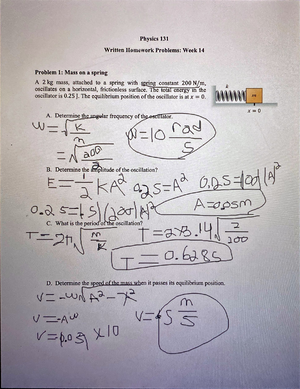 Physics 131
Written Homework Problems: Week 14
Problem 1: Mass on a spring
A 2 kg mass, attached to a spring with spring constant 200 N/m,
oscillates on a horizontal, frictionless surface. The total energy in the
oscillator is 0.25 J. The equilibrium position of the oscillator is at x = 0.
x = 0
A. Determine the angular frequency of the oscillator.
W=√K/m
W=10 rad/s
=√200
B. Determine the amplitude of the oscillation?
E=1/2 KA²
0.25=A²
0.25=100|A|²
0.25=(.5)(200)A²
A=0.05m
C. What is the period of the oscillation?
T=2π√m/K
T=2*3.14√2/200
T=0.628s
D. Determine the speed of the mass when it passes its equilibrium position.
V=-W√A²-X²
V=-AW
V=.5 m/s
V=(0.05)x10